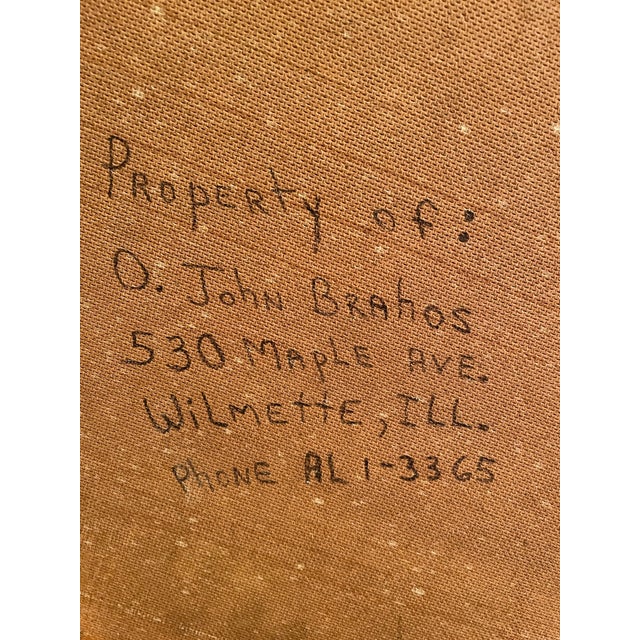 Property of:
O. John Brahos
530 Maple Ave.
Wilmette, Ill.
Phone AL 1-3365